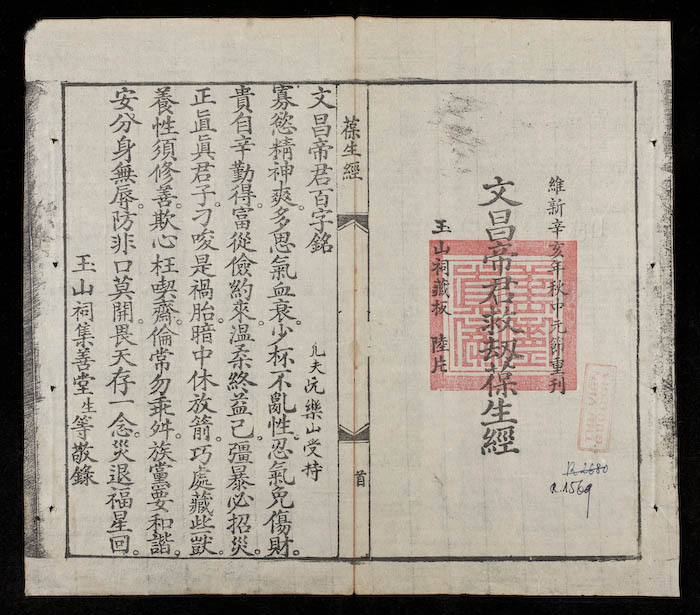 維新辛亥年秋中元節重刊
文昌帝君救劫葆生經
玉山祠藏板 陸片
R.1569
葆生經
首
文昌帝君百字銘 凢夫阮樂山受持
寡慾精神爽。多思氣血衰。少杯不亂性。忍氣免傷財。
貴自辛勤得。富從儉約來。温柔終益己。彊暴必招災。
正直真君子。刁唆是禍胎。暗中休放箭。巧處藏些獃。
養性須修善。欺心枉喫齋。倫常勿乖舛。族黨要和諧。
安分身無辱。防非口莫開。畏天存一念。災退福星回。
玉山祠集善堂生等敬錄